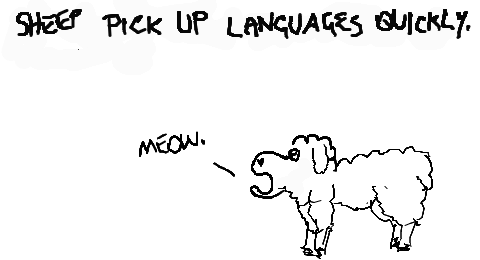 SHEEP PICK UP LANGUAGES QUICKLY.
MEOW.